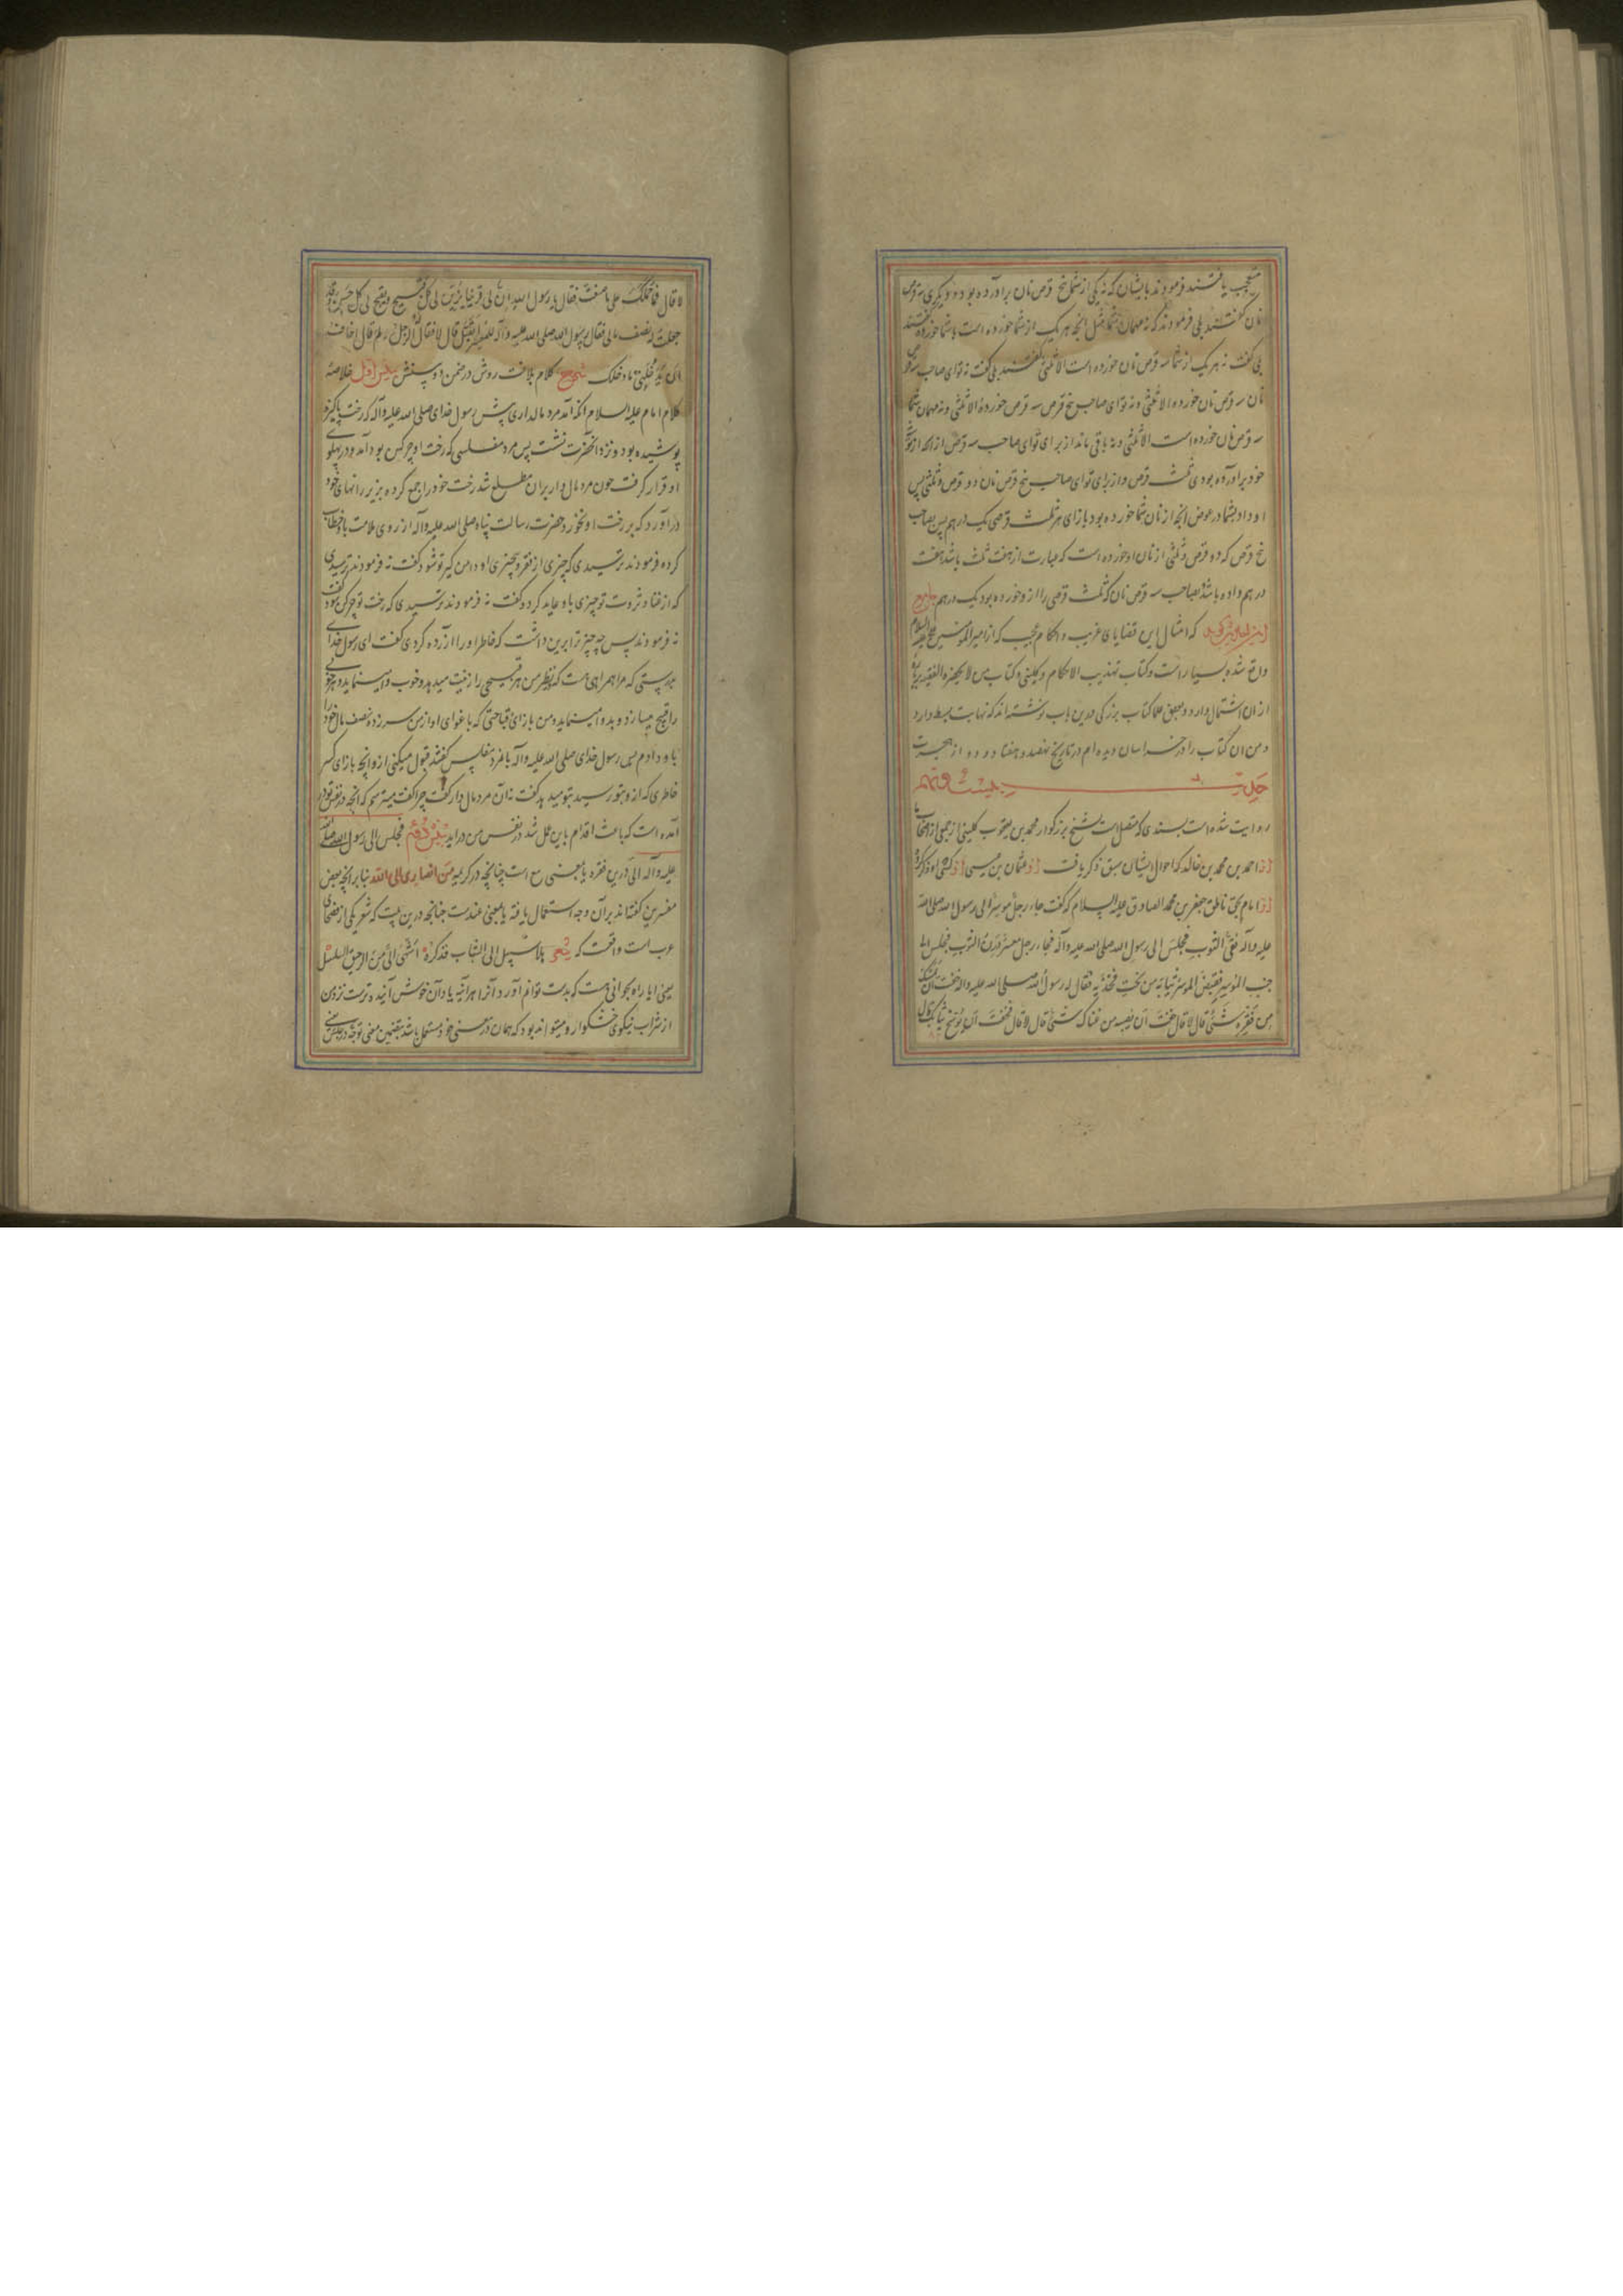 متعجب یافتند فرمودند بایشان که نه یکی از شما پنج قرص نان برآورده بود و دیگری سه قرص
نان گفتند بلی فرمودند که نه مهمان شما مثل آنچه هر یک از شما خورده است با شما خورده گفتند
بلی گفت نه هر یک از شما سه قرص نان خورده است الا ثلثی گفتند بلی گفت نه تو ای صاحب سه قرص
نان سه قرص نان خورده الا ثلثی و نه تو ای صاحب پنج قرص سه قرص خورده الا ثلثی و نه مهمان شما
سه قرص نان خورده است الا ثلثی و نه باقی ماند از برای تو ای صاحب سه قرص از انچه از توشه
خود براورده بودی ثلث قرص و از برای تو ای صاحب پنج قرص نان دو قرص و ثلثی پس
او داد بشما در عوض انچه از نان شما خورده بود بازای هر ثلث قرصی یک درهم پس بصاحب
پنج قرص که دو قرص و ثلثی از نان او خورده است که عبارت از هفت ثلث باشد هفت
درهم داده باشد بصاحب سه قرص نان که ثلث قرصی را از و خورده بود یک درهم جامع
این احادیث گوید که امثال این قضایای غریب و احکام عجیب که از امیر المومنین علیه السلام
واقع شده بسیار است و کتاب تهذیب الاحکام و کلینی و کتاب من لا یحضره الفقیه بر
از ان اشتمال دارد و بعضی علما کتاب بزرگی درین باب نوشته اند که نهایت بسط دارد
و من ان کتاب را در خراسان دیده ام در تاریخ نهصد و هفتاد و دو از هجرت
حدیث بیست و نهم
روایت شده است بسندی که متصل است بشیخ بزرکوار محمد بن یعقوب کلینی از جمعی از اصحاب ما
از احمد بن محمد بن خالد که احوال ایشان سبق ذکر یافت از عثمان بن عیسی از کسی که او ذکر کرد
از امام بحق ناطق جعفر بن محمد الصادق علیه السلام که گفت جاء رجل موسر الی رسول الله صلی الله
علیه و آله نقی الثوب فجلس الی رسول الله صلی الله علیه و آله فجاء رجل معسر درن الثوب فجلس الی
جنب الموسر فقبض الموسر ثیابه من تحت فخذیه فقال له رسول الله صلی الله علیه و اله خفت ان یمسک
من فقره شیٔ قال لا قال خفت ان یصیبه من غناک شیٔ قال لا قال فخفت ان یوسخ ثیابک قال
لا قال فما حملک علی ما صنعت فقال یا رسول الله ان لی قرینا یزین لی کل قبیح و یقبح لی کل حسن و قد
جعلت له نصف مالی فقال رسول الله صلی الله علیه و آله للمعسر اتقبل قال لا فقال له الرجل و لم قال اخاف
ان یدخلنی ما دخلک شرح کلام بلاغت روش در ضمن دو سخن سخن اول خلاصه
کلام امام علیه السلام انکه آمد مرد مالداری پیش رسول خدای صلی الله علیه و آله که رخت پاکیزه
پوشیده بود و نزد آنحضرت نشست پس مرد مفلسی که رخت او چرکین بود آمد و در پهلوی
او قرار کرفت چون مرد مال دار بران مطلع شد رخت خود را جمع کرده بزیر رانهای خود
درآورد که بر رخت او نخورد حضرت رسالت پناه صلی الله علیه و آله از روی ملامت باو خطاب
کرده فرمودند ترسیدی که چیزی از فقر و بیچیزی او دامن کیر تو شود گفت نه فرمودند ترسیدی
که از غنا و ثروت تو چیزی باو عاید کردد گفت نه فرمودند ترسیدی که رخت تو چرکین شود گفت
نه فرمودند پس چه چیز ترا برین داشت که خاطر او را آزرده کردی گفت ای رسول خدای
بدرستی که مرا همراهی هست که در نظر من هر قبیحی را زینت میدهد و خوب وا مینماید و هر خوبی
را قبیح میسازد و بد وا مینماید و من بازای قباحتی که باغوای او از من سر زده نصف مال خود را
باو دادم پس رسول خدای صلی الله علیه و آله بانمرد مفلس گفتند قبول میکنی ازو انچه بازای کسر
خاطری که از و بتو رسید بتو میدهد گفت نه آن مرد مال دار گفت چرا گفت میترسم که انچه در نفس تو در
آمده است که باعث اقدام باین عمل شد در نفس من دراید سخن دوم فجلس الی رسول الله صلی الله
علیه و آله الی درین فقره یا بمعنی مع است چنانچه در کریمه من انصاری الی الله بنا بر انچه بعض
مفسرین گفته اند بر آن وجه استعمال یافته یا بمعنی عند است چنانچه درین بیت که شعر یکی از فصحای
عرب است واقعست که شعر بلا سبیل الی الشباب فذکره اشهی الی من الرحیق السلسل
یعنی ایا راه بجوانی هست که بدست توانم آورد آنرا هر آینه یاد آن خوش آینده ترست نزد من
از شراب نیکوی خوشکوار و میتواند بود که همان در معنی خود مستعمل باشد بتضمین معنی توجه در جلس یعنی